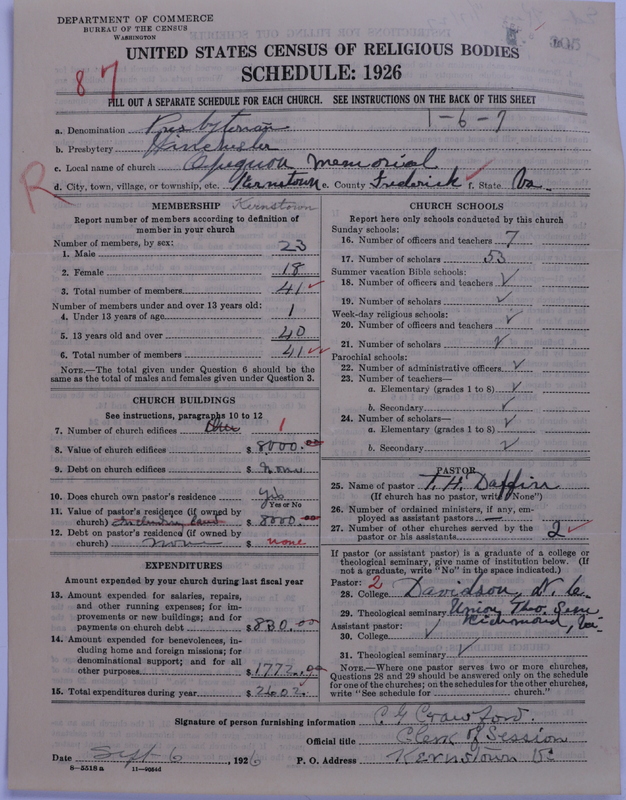 DEPARTMENT OF COMMERCE
BUREAU OF THE CENSUS
WASHINGTON
305
UNITED STATES CENSUS OF RELIGIOUS BODIES
SCHEDULE: 1926
87
FILL OUT A SEPARATE SCHEDULE FOR EACH CHURCH. SEE INSTRUCTIONS ON THE BACK OF THIS SHEET
1-6-7
a. Denomination Presbyterian
b. Presbytery Winchester
c. Local name of church Opequon Memorial
R
d. City, town, village, or township, etc. Kernstown e. County Frederick f. State Va.
MEMBERSHIP Kernstown
Report number of members according to definition of
member in your church
Number of members, by sex:
1. Male 23
2. Female 18
3. Total number of members 41
Number of members under and over 13 years old:
4. Under 13 years of age 1
5. 13 years old and over 40
6. Total number of members 41
NOTE.—The total given under Question 6 should be
the same as the total of males and females given under Question 3.
CHURCH BUILDINGS
See instructions, paragraphs 10 to 12
7. Number of church edifices One 1
8. Value of church edifices $ 8000.00
9. Debt on church edifices $ none
10. Does church own pastor's residence Yes
Yes or No
11. Value of pastor's residence (if owned by
church) Including land $ 8000.00
12. Debt on pastor's residence (if owned by
church) none $ none
EXPENDITURES
Amount expended by your church during last fiscal year
13. Amount expended for salaries, repairs,
and other running expenses; for im-
provements or new buildings; and for
payments on church debt $ 830.00
14. Amount expended for benevolences, in-
cluding home and foreign missions; for
denominational support; and for all
other purposes $ 1772.00
15. Total expenditures during year $ 2602.
CHURCH SCHOOLS
Report here only schools conducted by this church
Sunday schools:
16. Number of officers and teachers 7
17. Number of scholars 53
Summer vacation Bible schools:
18. Number of officers and teachers ✓
19. Number of scholars ✓
Week-day religious schools:
20. Number of officers and teachers ✓
21. Number of scholars ✓
Parochial schools:
22. Number of administrative officers ✓
23. Number of teachers—
a. Elementary (grades 1 to 8) ✓
b. Secondary ✓
24. Number of scholars—
a. Elementary (grades 1 to 8) ✓
b. Secondary ✓
PASTOR
25. Name of pastor T. H. Daffin
(If church has no pastor, write "None")
26. Number of ordained ministers, if any, em-
ployed as assistant pastors —
27. Number of other churches served by the
pastor or his assistants 2
If pastor (or assistant pastor) is a graduate of a college or
theological seminary, give name of institution below. (If
not a graduate, write "No" in the space indicated.)
Pastor: 2
28. College Davidson, N. Ca.
29. Theological seminary Union Theo. Sem
Richmond, Va.
Assistant pastor:
30. College ✓
31. Theological seminary ✓
NOTE.—Where one pastor serves two or more churches,
Questions 28 and 29 should be answered only on the schedule
for one of the churches; on the schedules for the other churches,
write "See schedule for church."
Signature of person furnishing information C G Crawford.
Official title Clerk of Session
Date Sept 6, 1926 P. O. Address Kernstown Va
8—5518 a 11—9084d